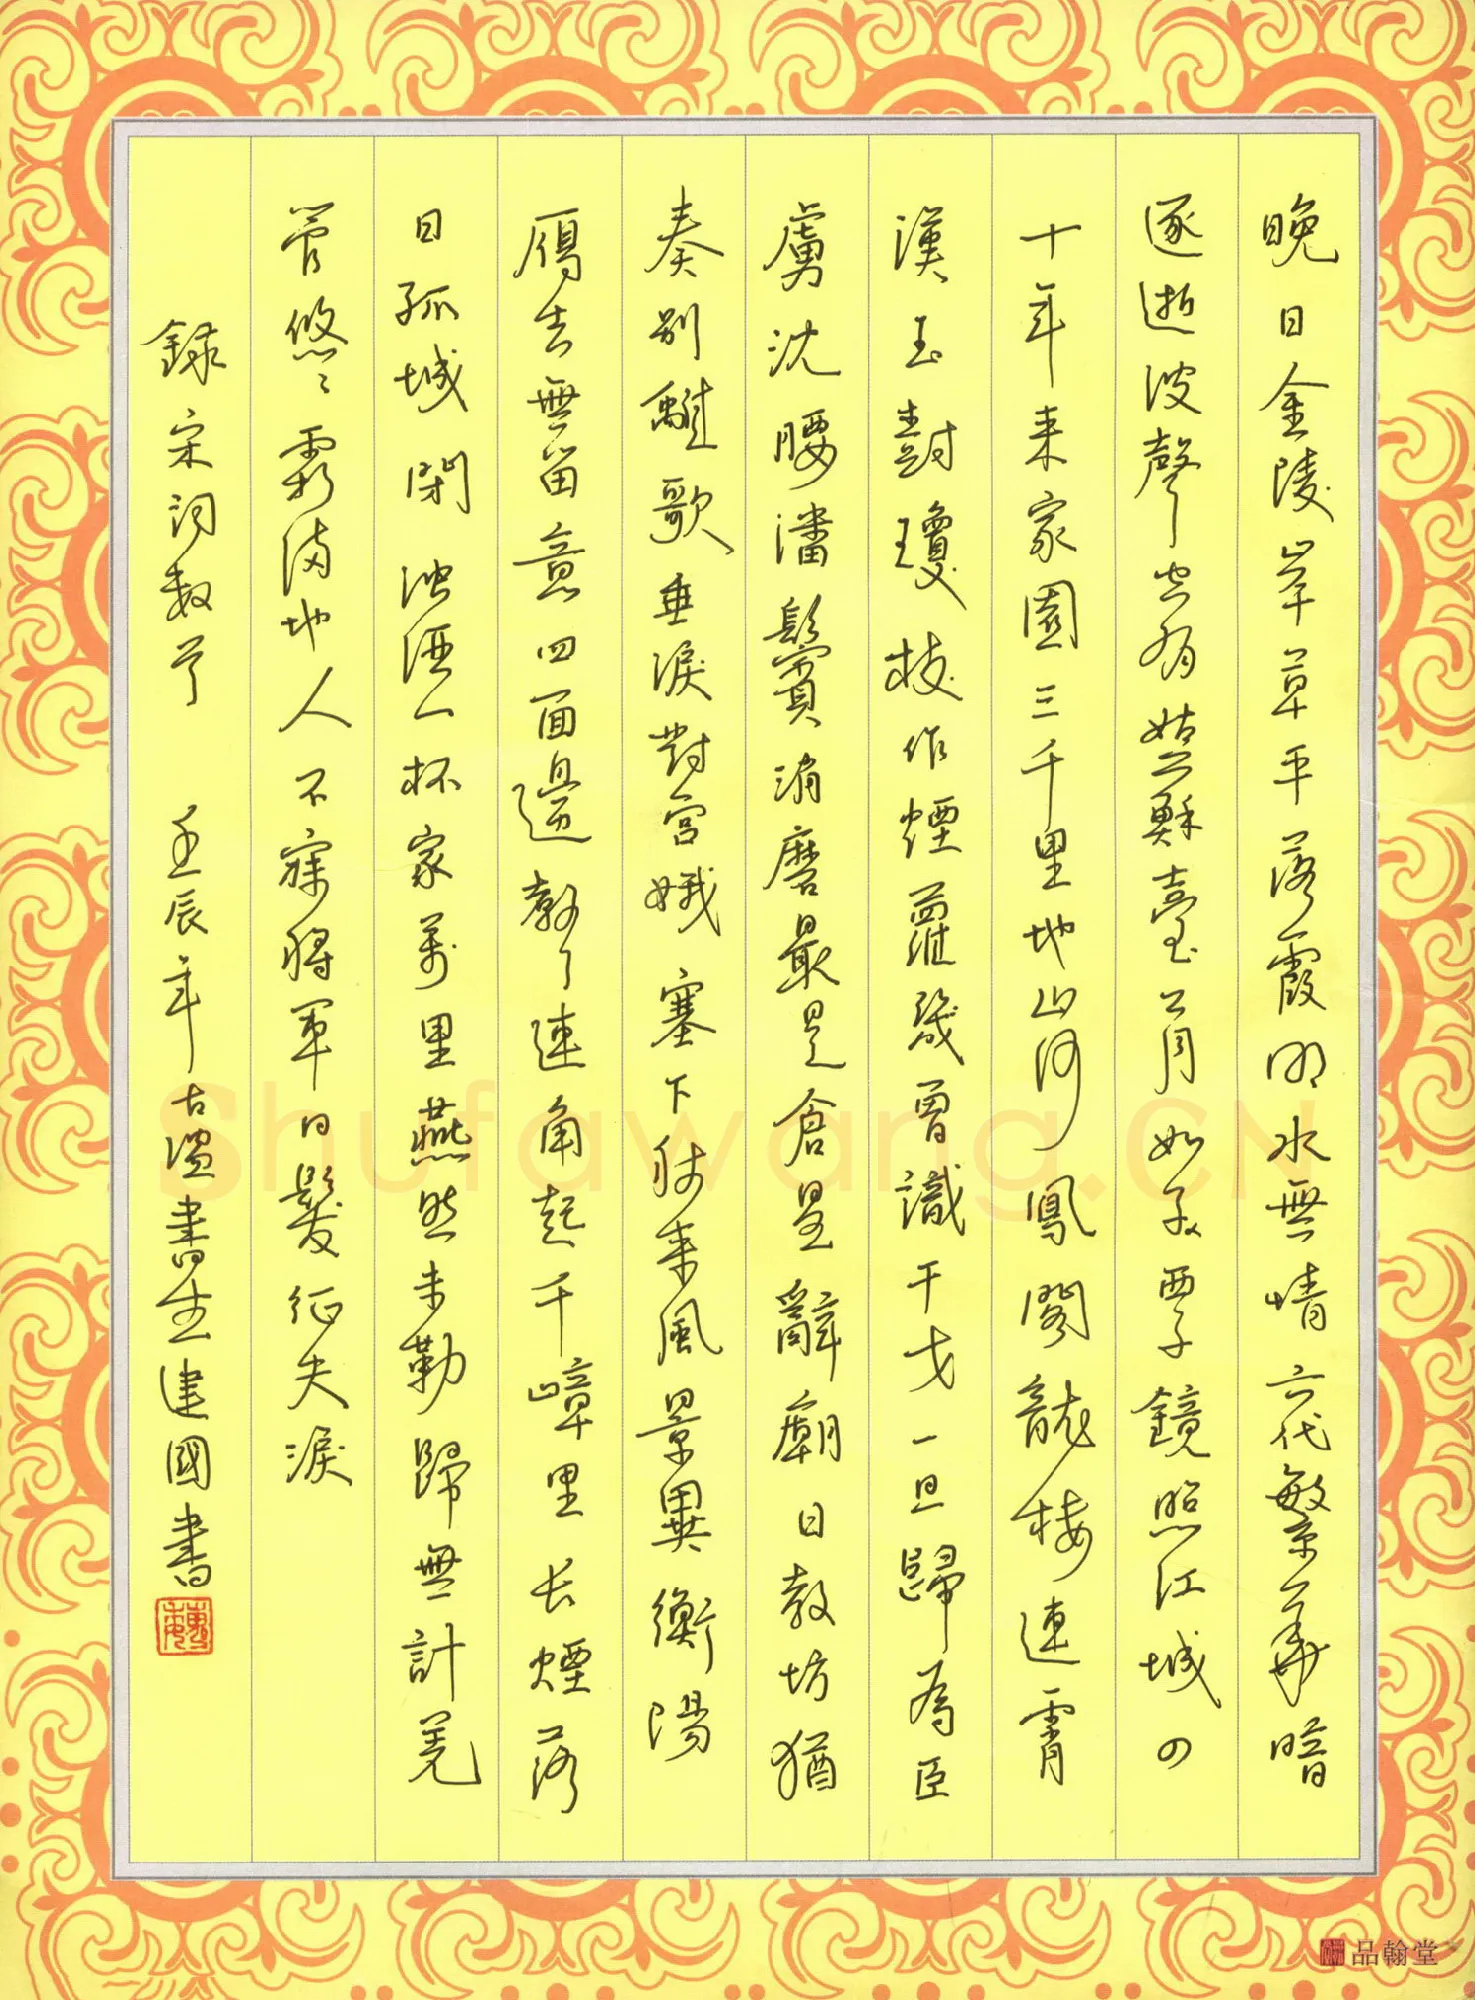 晚日金陵岸草平落霞明水無情六代繁華暗
逐逝波聲空有姑蘇臺上月如西子鏡照江城四
十年来家園三千里地山河鳳閣龍樓連霄
漢玉樹瓊枝作煙蘿幾曾識干戈一旦歸為臣
虜沈腰潘鬢消磨最是倉皇辭廟日教坊猶
奏別離歌垂淚對宮娥塞下秋来風景異衡陽
雁去無留意四面邊聲連角起千嶂里长煙落
日孤城閉濁酒一杯家萬里燕然未勒歸無計羌
管悠〻霜滿地人不寐將軍白髮征夫淚
錄宋詞數首 壬辰年古溫書生建國書
Shufawang.CN
品翰堂